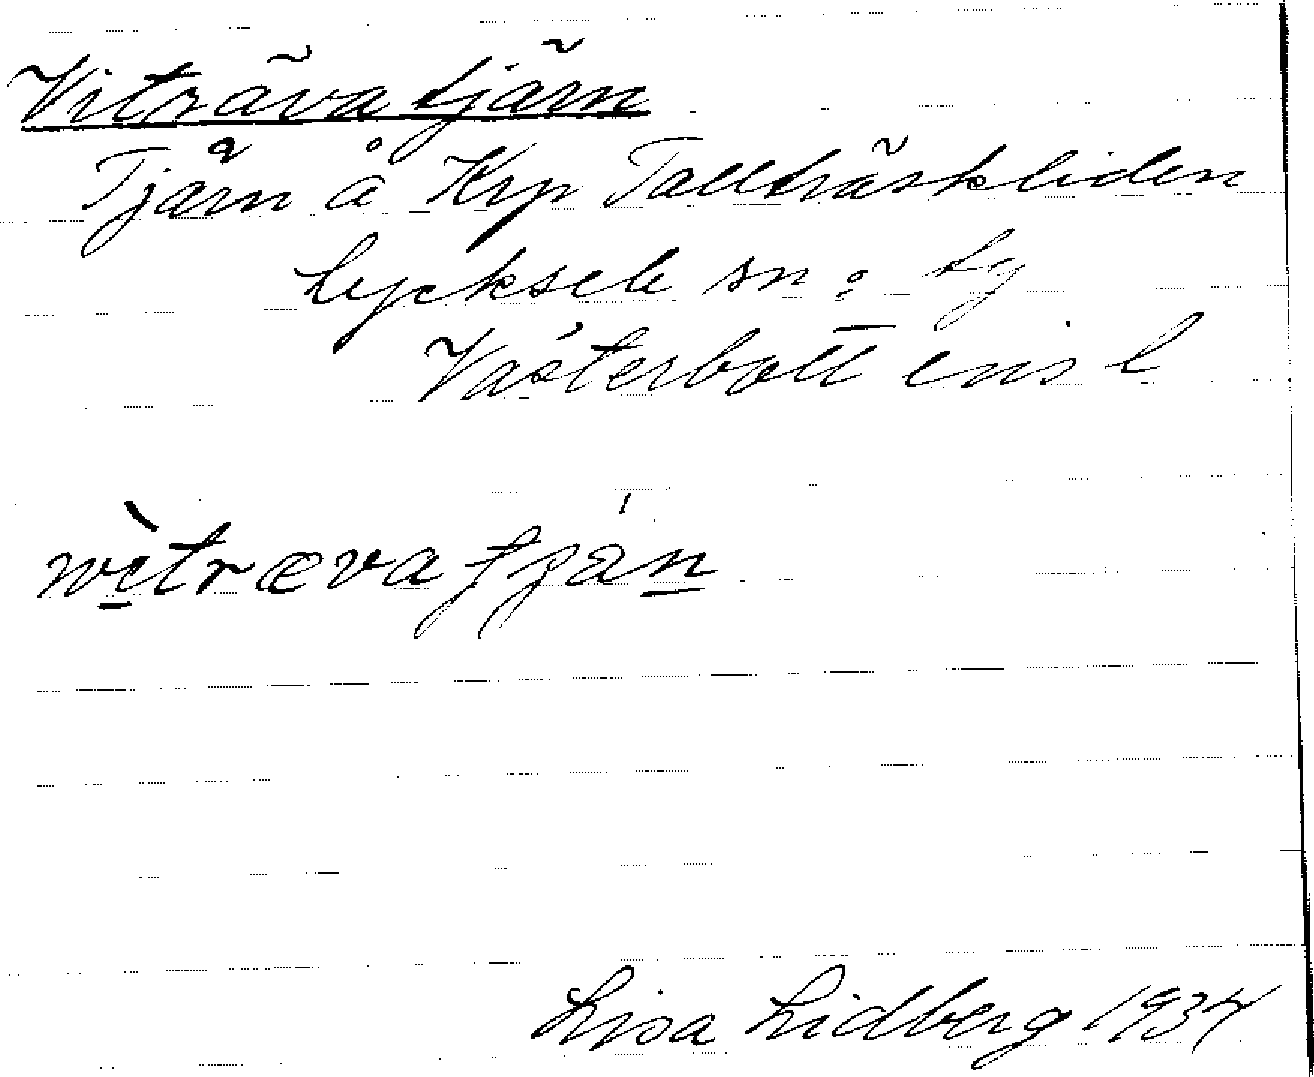 Viträvatjärn
Tjärn å Krp Tallträskliden
Lycksele sn:
Västerbottens l
wètrævatjan
Lisa Lidberg 1934